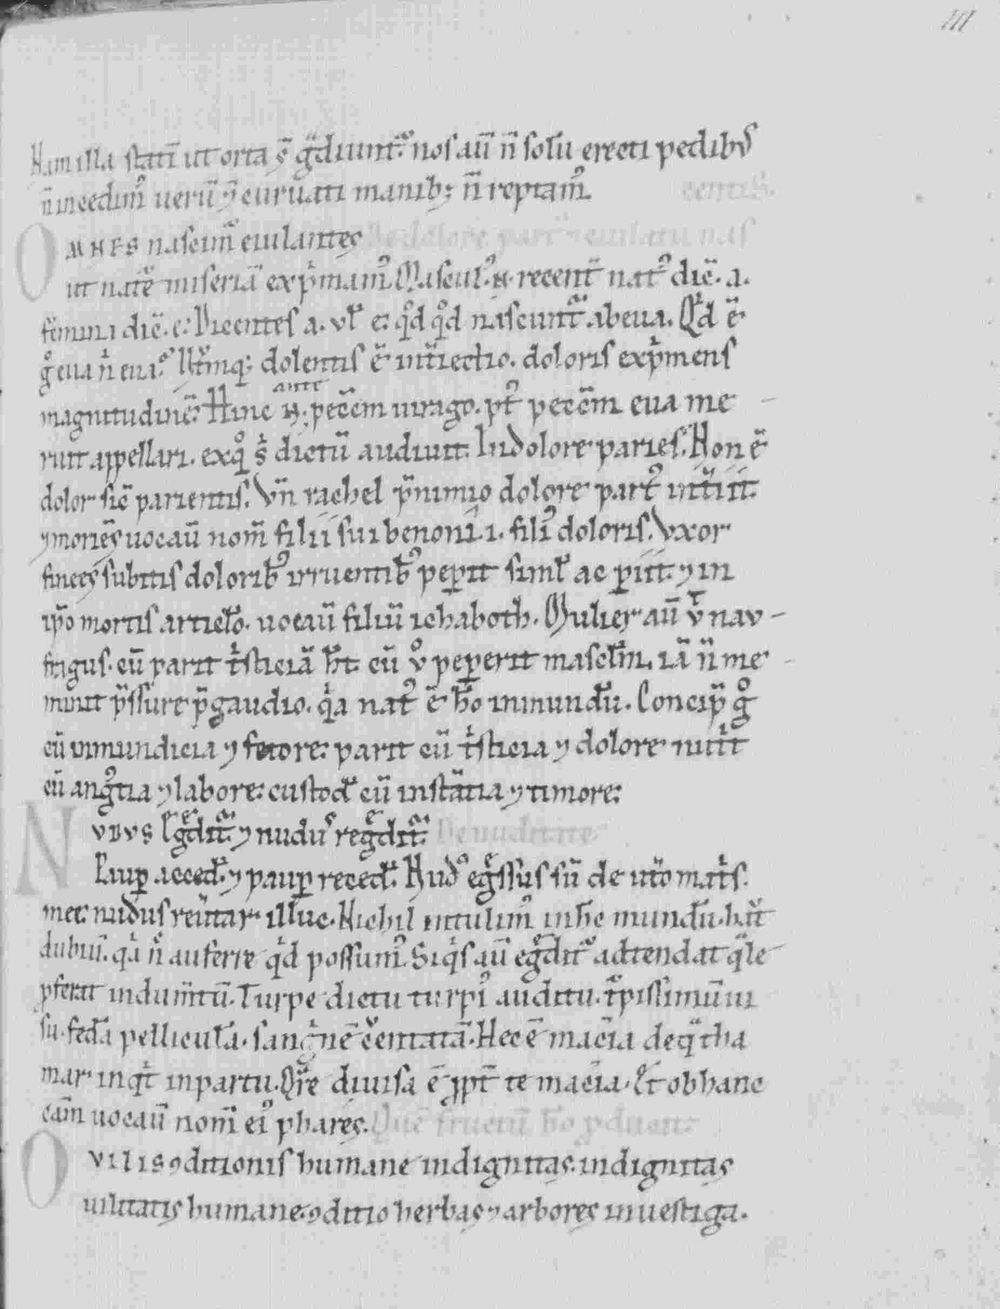 III
Nam illa statī ut orta s̄ gͣdiuntᷣ nos aū n̄ solū erecti pedibꝰ
n̄ incedimꝰ uerū ⁊ curuati manibꝫ n̄ reptamꝰ.
OMNES nascimᷣ eiulantes De dolore partꝰ ⁊ eiulatu nas centis.
ut naturē miseriā exp̄mamꝰ. Masculꝰ .n. recent̄ natꝰ dic̄ .a.
femina dic̄ .e. Dicentes .a. ul̄ .e. qͦd qͦd nascuntᷣ ab eua. Qͥd ē
gͦ eua nͥ eu a? Utrūqꝫ dolentis ē int̄iectio. doloris expͥmens
magnitudinē. Hinc .n. ante pecc̄m uirago. pꝰt pecc̄m eua me
ruit appellari. ex qͦ sͥ dictū audiuit. In dolore paries. Non ē
dolor sic̄ parientis. Vn̄ rachel p̄ nimio dolore partꝰ int̄iit.
⁊ moriēs uocauͭ nom̄ filii sui benoni .i. filiꝰ doloris. Vxor
finees subitis doloribꝰ irruentibꝰ peꝑit siml̄ ac ꝑiit. ⁊ in
ip̄o mortis articlͦo. uocauͭ filiū ichaboth. Mulier aū uͭ nau
fragus. cū parit tͥsticiā hͭ. cū uͦ pepererit masclm̄, iā n̄ me
minit p̄ssure p̄ gaudio. qͥa natꝰ ē hͦo in mundū. Concipͭ gͦ
cū immundicia ⁊ fetore: parit cū tͥsticia ⁊ dolore nutͥt
cū angꝰtia ⁊ labore: custodͭ cū instātia ⁊ timore:
NVDVS Egͤditᷣ ⁊ nudus regͤditᷣ. De nuditate
Pauꝑ accedͭ. ⁊ pauꝑ recedͭ. Nudꝰ egͤssus sū de utͦo matͥs
mee. nudus reūtar illuc. Nichil intulimꝰ in hc̄ mundū. haͭ
dubiū. qͥa nͨ auferre qͥd possumꝰ. Si qͥs aū egͤditᷣ adtendat qͣle
ꝓferat indumtū. Turpe dictu turpiꝰ auditu. tᷣpissimū ui
su. fedā pelliculā. sangͥne cͬentatā. Hec ē maceria de qͣ tha
mar inqͥt in partu. Qͣre diuisa ē ꝓpt̄ te maceria. Et ob hanc
cam̄ uocauͭ nom̄ eiꝰ phares. Quē fructū hͦo ꝓducit
O VILIS ꝯditionis humane indignitas. indignitas
uilitatis humane ꝯditio herbas ⁊ arbores inuestiga.